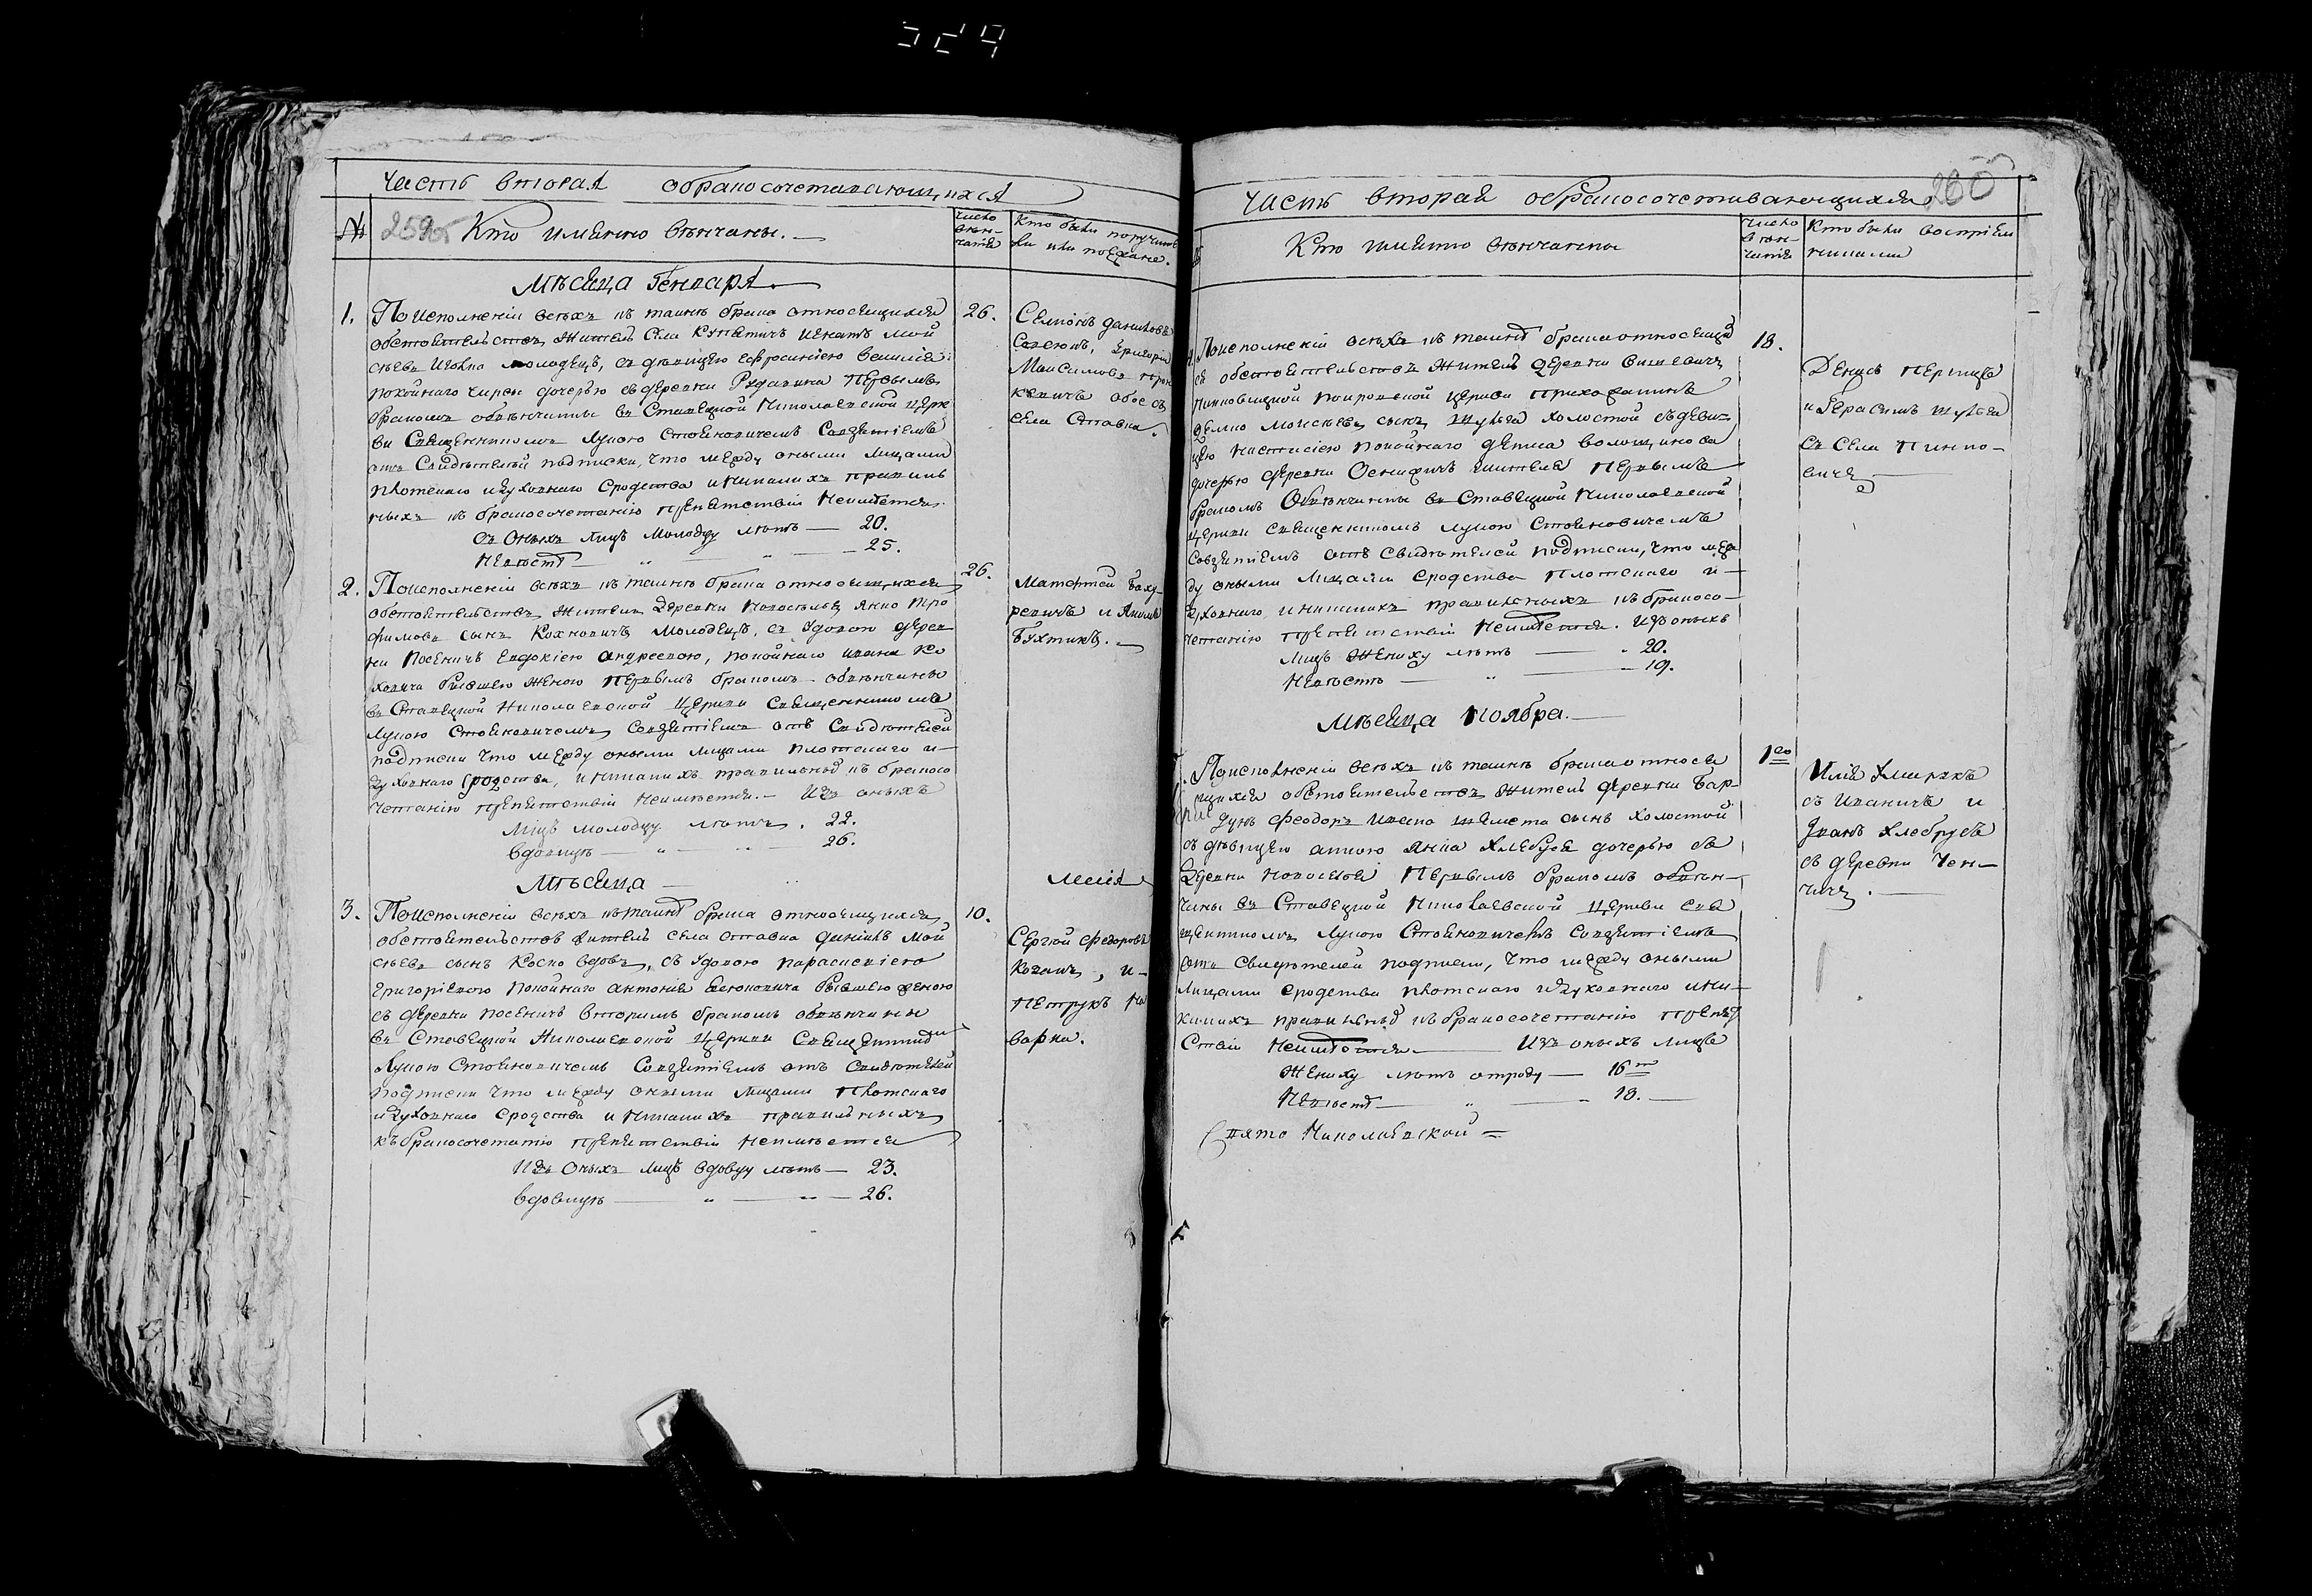 Часть вторая обракосочетавающихся
№ 259 об Кто имянно вѣнчаны. —
число вѣн-
чанія
Кто были поручите
ли или поѣзжане.
Мѣсяца Генваря
1. Поисполненіи всѣхъ къ таинѣ брака относящихся 26.
обстоятельствъ Житель Села Игнатъ Мой
сѣевъ молодецъ, съ дѣвицею Ефросиніею
покойнаго дочерью съ деревни Первымъ
бракомъ обвѣнчанны въ Ставецкой Николаевской церк
ви Священникомъ Лукою Стояновичемъ Совзятіемъ
отъ Свидѣтелей подписки, что между оными лицами
плотскаго и духовнаго Сродства и никакихъ правиль
ныхъ къ бракосочетанію препятствій неимѣется.
Съ оныхъ лицъ Молодцу лѣтъ — 20.
Невѣстѣ — „ — 25.
Семіонъ Даниловъ
Григорій
Максимовъ
обое съ
села Ставка.
2. Поисполненіи всѣхъ къ таинѣ брака относящихся 26.
обстоятельствъ житель Деревни Новоселъ Янко Тро
фимовъ сынъ Кохновичъ Молодецъ, съ Удовою дерев
ни Посеничъ Евдокіею Андреевою, покойнаго Ивана Ко
ховича бывшею женою Первымъ бракомъ обвѣнчаны
въ Ставецкой Николаевской Церкви Священникомъ
Лукою Стояновичемъ Совзятіемъ отъ Свидѣтелей
подписки что между оными лицами плотскаго и —
духовнаго сродства, и никакихъ правильныхъ къ бракосо
четанію препятствій неимѣется. — Изъ оныхъ
Лицъ молодцу лѣтъ . 22.
вдовицѣ — „ — 26.
Матфей Баху
ревичъ и Якимъ
Бухтикъ. —
Мѣсяца — Маія
3. Поисполненіи всѣхъ къ таинѣ брака относящихся 10.
обстоятельствъ житель села Ставка Данилъ Мой
сѣевъ сынъ Коско вдовъ, съ Удовою Параскевіею
Григоріевою покойнаго Антонія бывшею женою
съ деревни Посеничъ вторымъ бракомъ обвѣнчаны
въ Ставецкой Николаевской Церкви Священникомъ
Лукою Стояновичемъ Совзятіемъ отъ Свидѣтелей
подписки что между оными лицами плотскаго
и духовнаго Сродства и никакихъ правильныхъ
къ бракосочетанію препятствій неимѣется
Изъ оныхъ лицъ вдовцу лѣтъ — 23.
вдовицѣ — „ — 26.
Сергій Федоровъ
и —
Петрукъ
Часть вторая обракосочетавающихся 260
Кто имянно вѣнчаны
число
вѣн-
чанія
Кто были воспріем
никами
4. Поисполненіи всѣхъ къ таинѣ брака относящих 18.
съ обстоятельствъ житель деревни Вишевичъ
Пинковицкой Покровской церкви прихожанинъ
Демко Мойсѣевъ сынъ Шуляга холостой съ деви-
цею Настасіею покойнаго Дениса
дочерью деревни Оснежичъ Первымъ
бракомъ Обвѣнчанны въ Ставецкой Николаевской
церкви священникомъ Лукою Стояновичемъ
Совзятіемъ отъ Свидѣтелей подписки, что меж
ду оными Лицами сродства плотскаго и —
духовнаго и никакихъ правильныхъ къ бракосо-
четанію препятствій неимѣется. Изъ оныхъ
Лицъ Жениху лѣтъ — 20.
Невѣстѣ — „ — 19.
Денисъ
и Герасимъ Шуляга
съ Села Пинко-
вичъ
Мѣсяца Ноября. —
Поисполненіи всѣхъ къ таинѣ брака относя 1го
щихся обстоятельствъ Житель деревни Бар-
дунъ Феодоръ Ивана Шемета сынъ холостой
съ дѣвицею Анною Янка Хлебуса дочерью съ
Деревни Новоселъ Первымъ бракомъ обвѣн-
чаны въ Ставецкой Николаевской церкви свя
щенникомъ Лукою Стояновичемъ Совзятіемъ
отъ Свидѣтелей подписки, что между оными
Лицами сродства плотскаго и духовнаго и ни-
какихъ правильныхъ къ бракосочетанію препят
ствій неимѣется — Изъ оныхъ лицъ
Жениху лѣтъ отроду — 16
Невѣстѣ — „ — 18. —
Свято Николаевской =
Илія
съ Иваничъ и
Иванъ
съ деревни Чен-
чичъ. —